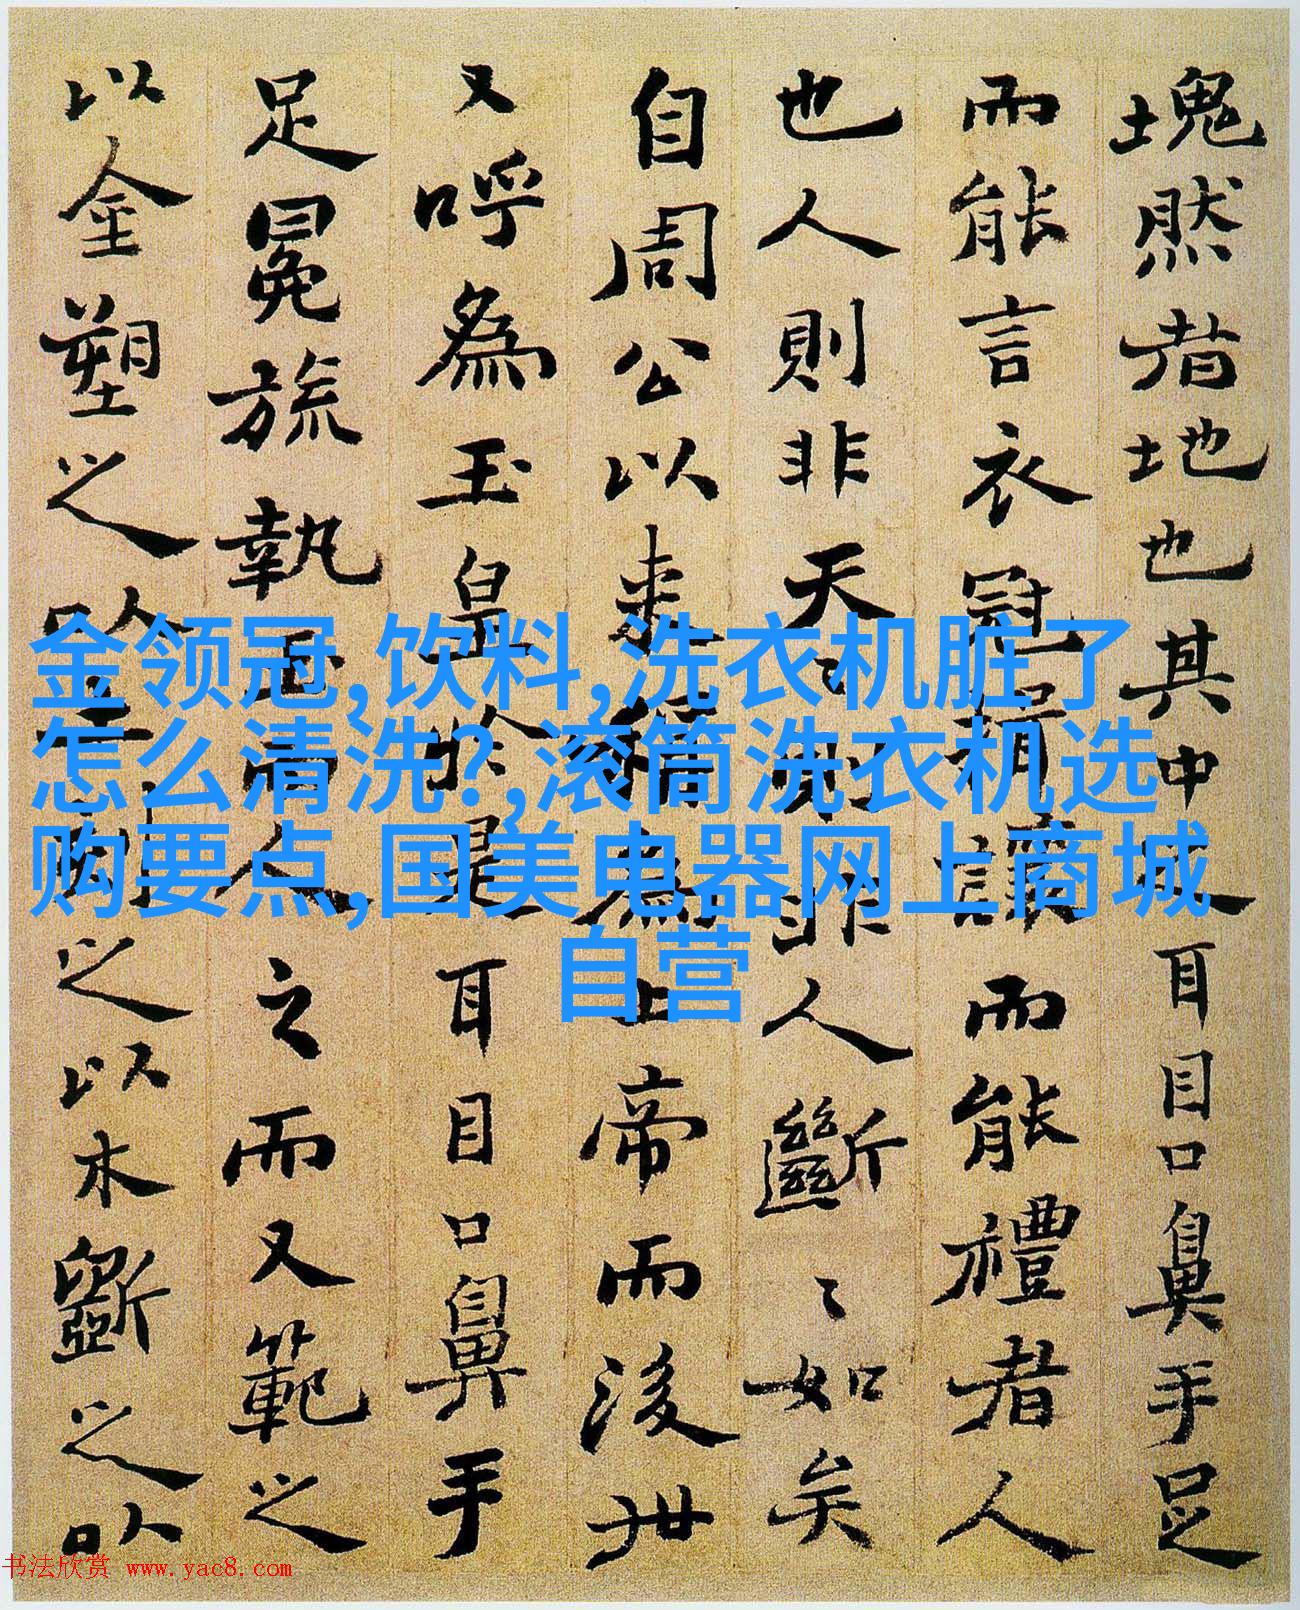 塊然者地也其中耳目口鼻手足
而能言衣冠揖讓而能禮者人
也人則非天〻則非人斷〻如矣
自周公以來稱為上帝而後世
又呼為玉皇於是耳目口鼻手
足冕旒執玉而人之而又範之
以金塑之以土之以木斲之以
金领冠,饮料,洗衣机脏了
怎么清洗?,滚筒洗衣机选
购要点,国美电器网上商城
自营
书法欣赏 www.yac8.com